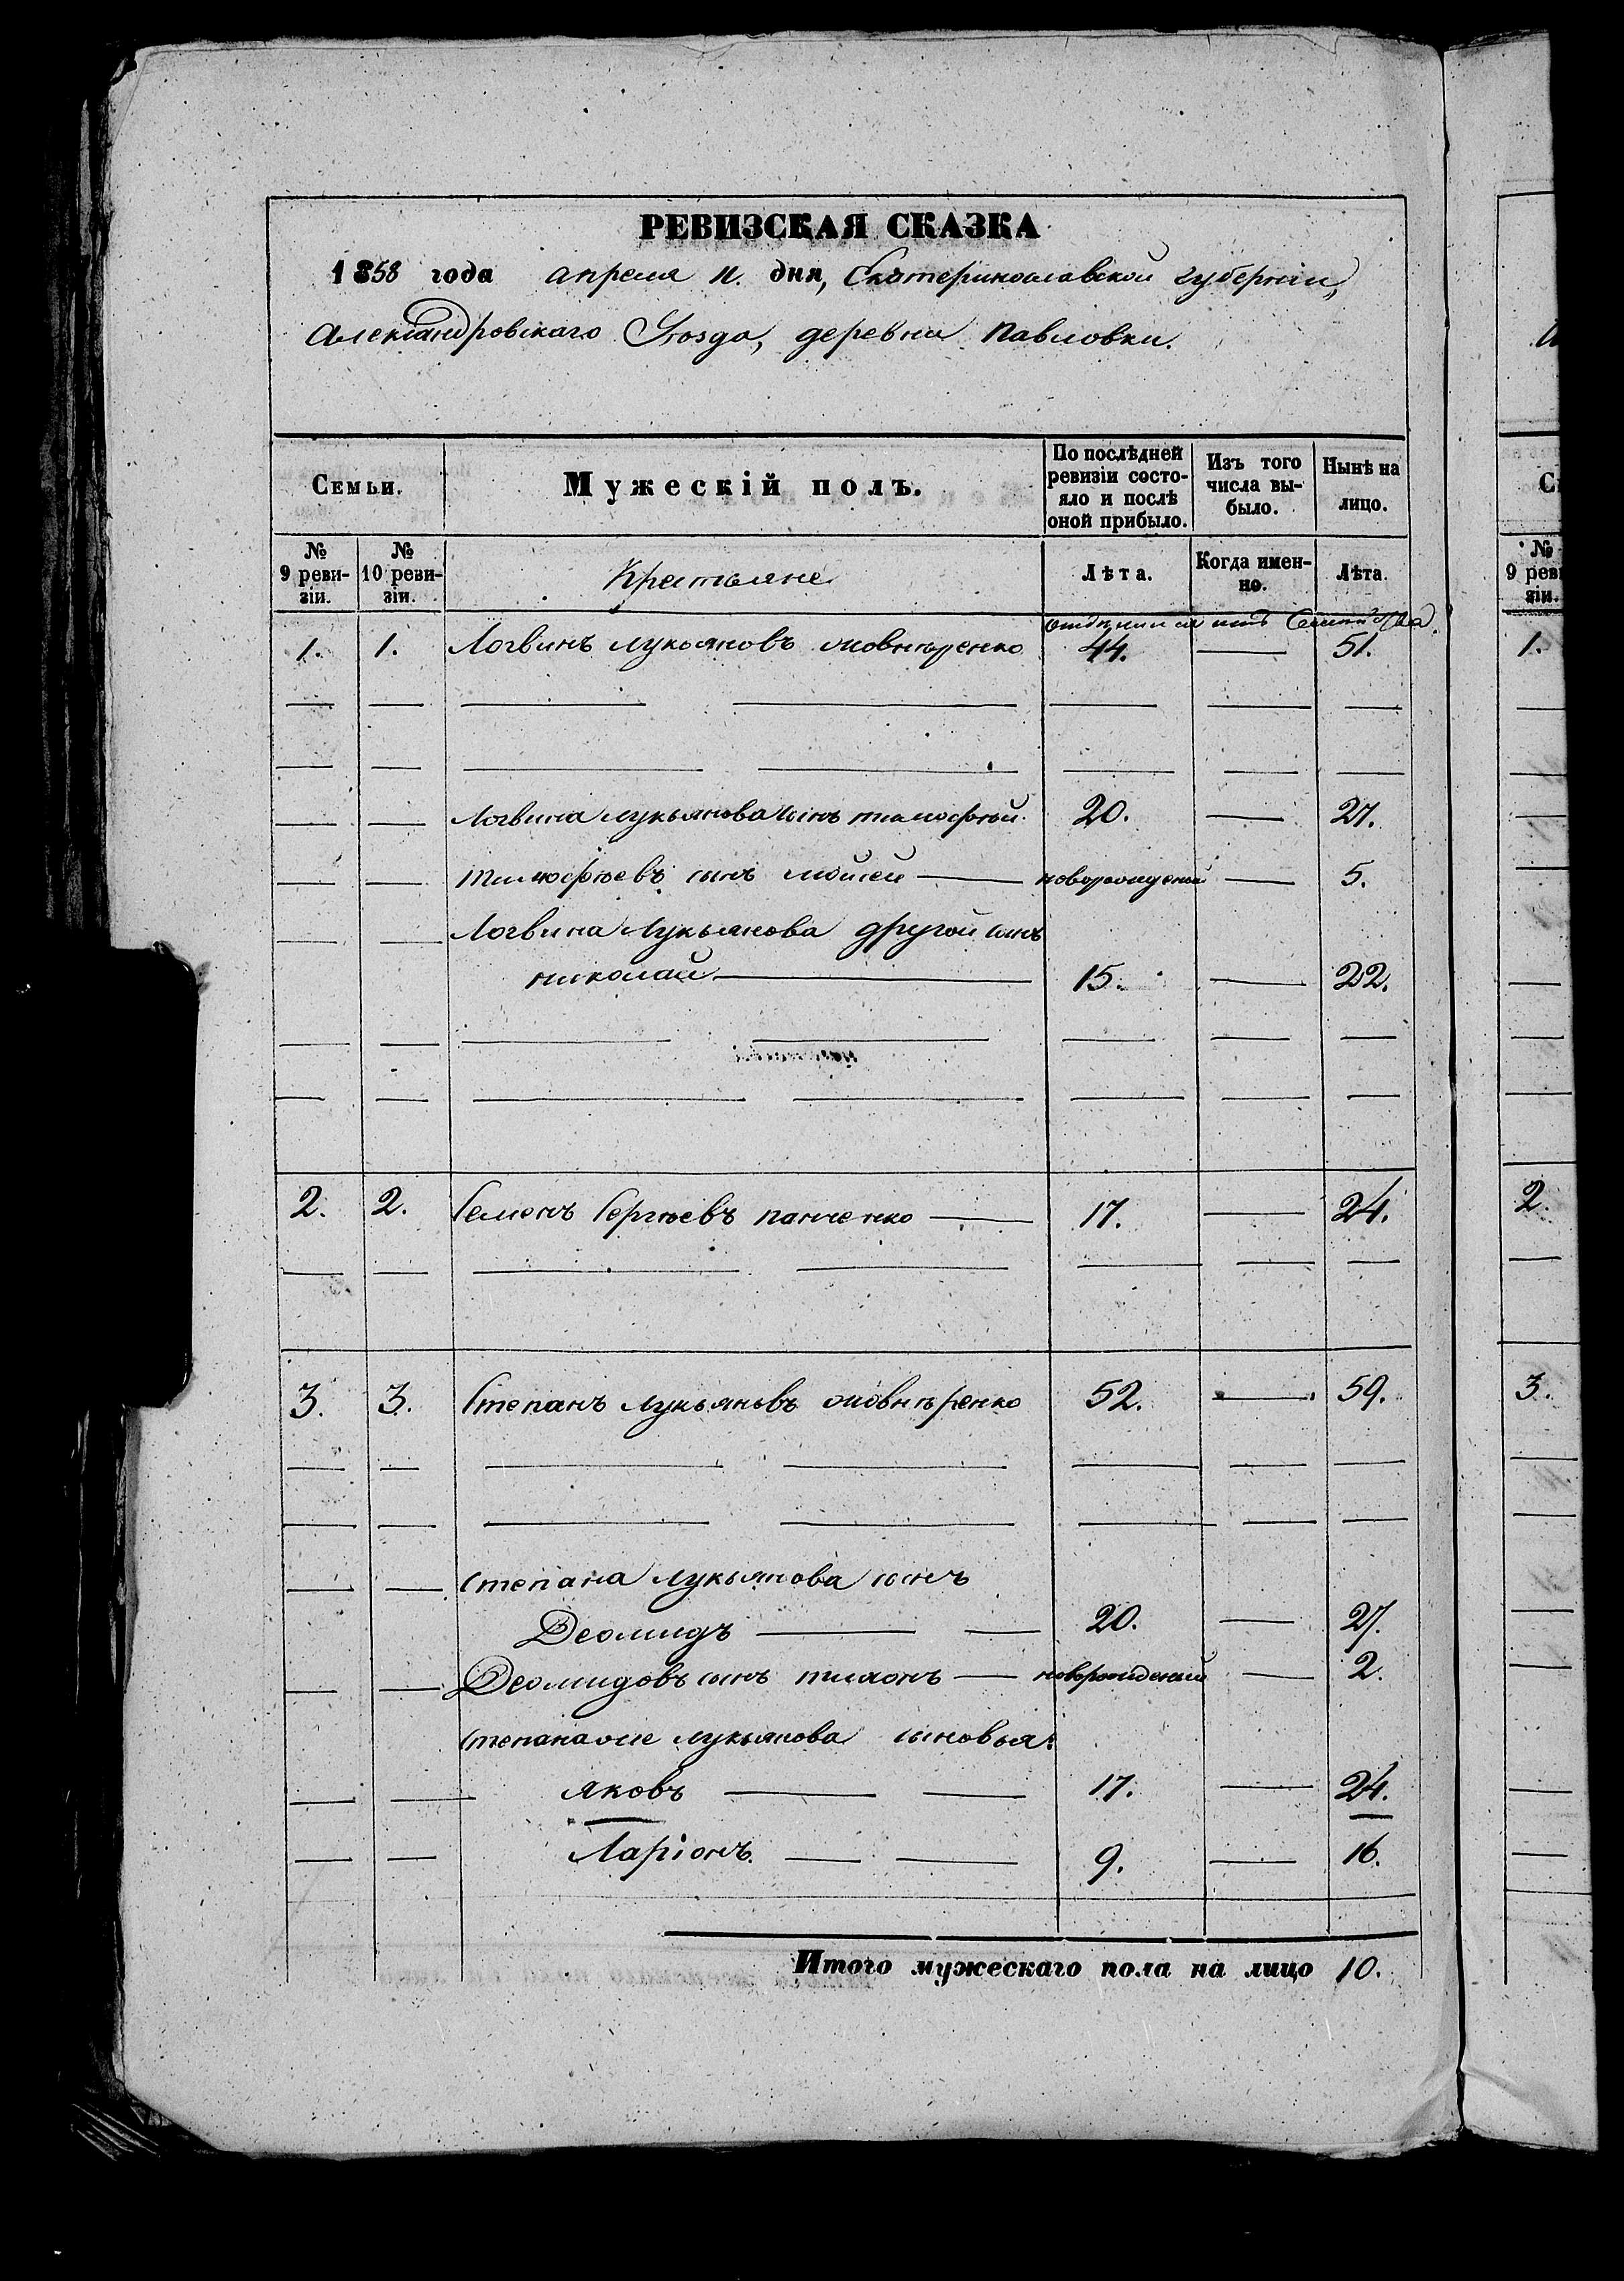 РЕВИЗСКАЯ СКАЗКА
1858 года апреля 11. дня, Екатеринославской губернiи,
Александровскаго Уѣзда, деревни Павловки.
Семьи.
Мужескiй полъ.
По послѣдней ревизiи состо-
яло и послѣ
оной прибыло.
Изъ того
числа вы-
было.
Нынѣ на
лицо.
№
9 реви-
зiи.
№
10 реви-
зiи.
Крестьяне
Лѣта.
Когда имен-
но.
Лѣта.
1. 1. Логвинъ Лукьяновъ Жовнѣренко 44. 51.
Логвина Лукьянова сынъ Тимофѣй 20. 27.
Тимофѣевъ сынъ Мойсей новорожденый 5.
Логвина Лукьянова другой сынъ
Николай 15. 22.
2. 2. Семенъ Сергѣевъ Панченко 17. 24.
3. 3. Степанъ Лукьяновъ Жовнѣренко 52. 59.
Степана Лукьянова сынъ
Деомидъ 20. 27.
Деомидовъ сынъ новорожденый 2.
Степана же Лукьянова сыновья:
Яковъ 17. 24.
Ларiонъ. 9. 16.
Итого мужескаго пола на лицо 10.
С
№
9 реви
зiи.
1.
2.
3.